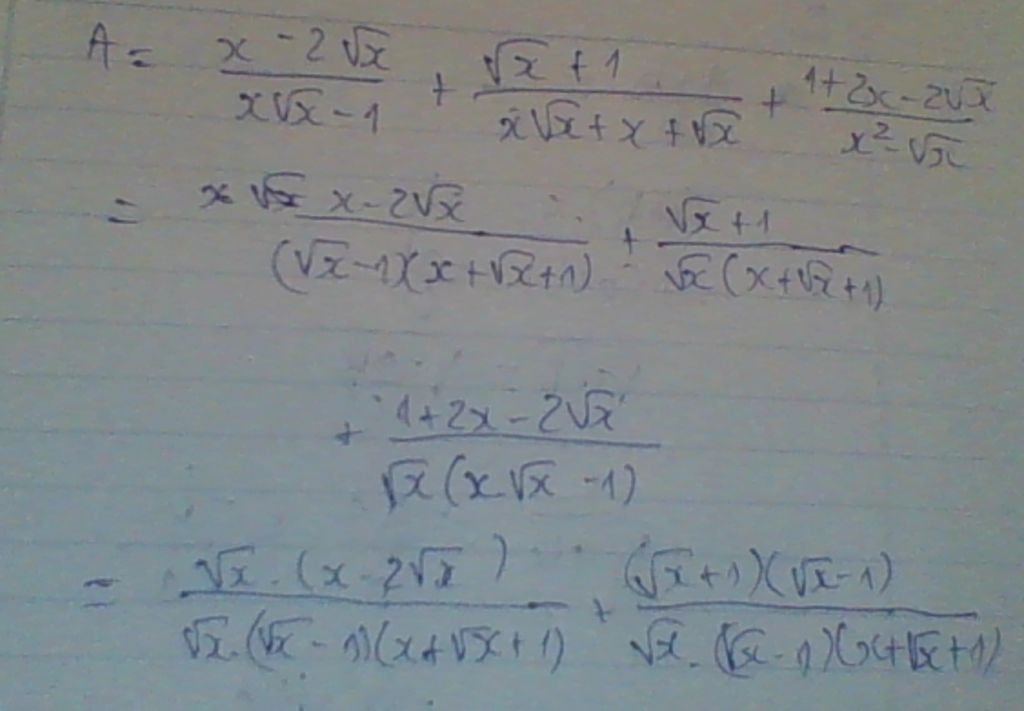 A = \frac{x - 2\sqrt{x}}{x\sqrt{x} - 1} + \frac{\sqrt{x} + 1}{x\sqrt{x} + x + \sqrt{x}} + \frac{1 + 2x - 2\sqrt{x}}{x^2 - \sqrt{x}}
= \frac{x - 2\sqrt{x}}{(\sqrt{x} - 1)(x + \sqrt{x} + 1)} + \frac{\sqrt{x} + 1}{\sqrt{x}(x + \sqrt{x} + 1)}
+ \frac{1 + 2x - 2\sqrt{x}}{\sqrt{x}(x.\sqrt{x} - 1)}
= \frac{\sqrt{x}.(x - 2\sqrt{x})}{\sqrt{x}.(\sqrt{x} - 1)(x + \sqrt{x} + 1)} + \frac{(\sqrt{x} + 1)(\sqrt{x} - 1)}{\sqrt{x}.(\sqrt{x} - 1)(x + \sqrt{x} + 1)}